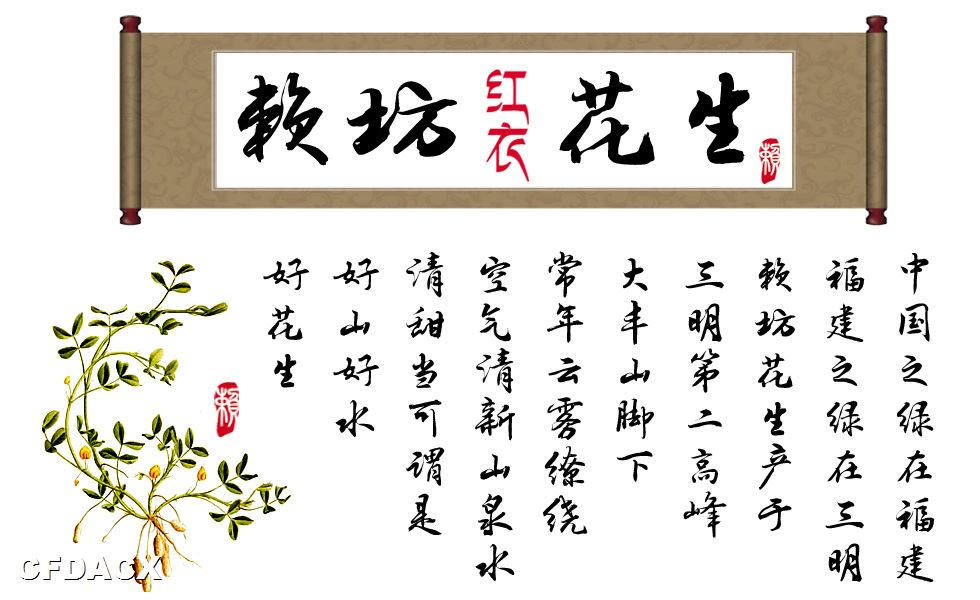 赖坊红衣花生
赖
中国之绿在福建
福建之绿在三明
赖坊花生产于
三明第二高峰
大丰山脚下
常年云雾缭绕
空气清新山泉水
清甜当可谓是
好山好水
好花生
賴
CFDACX